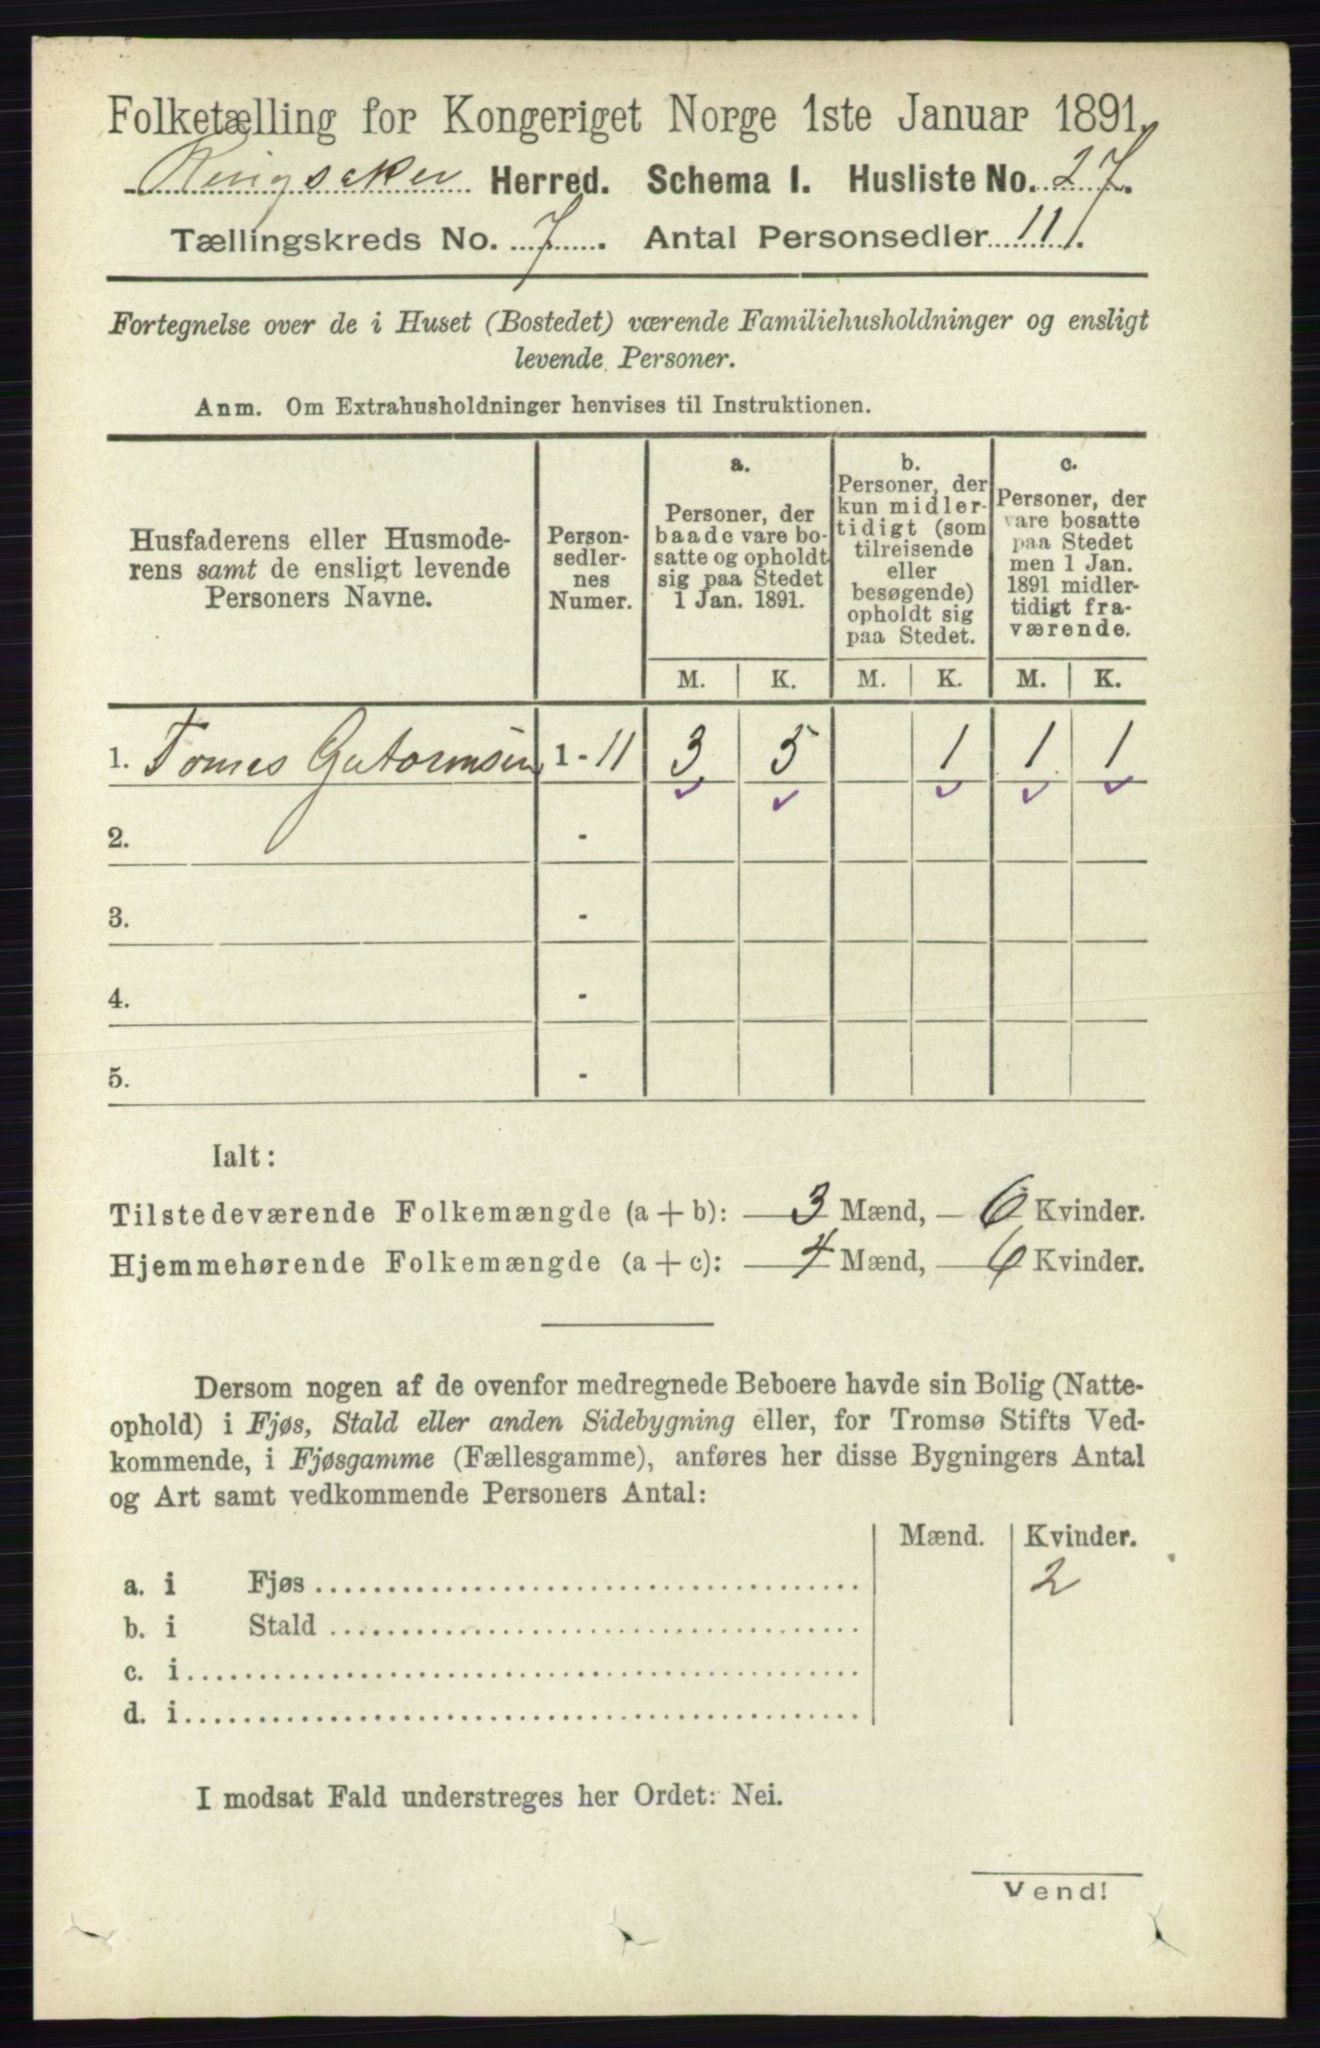 Folketælling for Kongeriget Norge 1ste Januar 1891.
Ringsaker Herred. Schema I. Husliste No. 27.
Tællingskreds No. 7. Antal Personsedler 11.
Fortegnelse over de i Huset (Bostedet) værende Familiehusholdninger og ensligt
levende Personer.
Anm. Om Extrahusholdninger henvises til Instruktionen.
Husfaderens eller Husmode-
rens samt de ensligt levende
Personers Navne.
Person-
sedler-
nes
Numer.
a.
Personer, der
baade vare bo-
satte og opholdt
sig paa Stedet
1 Jan. 1891.
b.
Personer, der
kun midler-
tidigt (som
tilreisende
eller
besøgende)
opholdt sig
paa Stedet.
c.
Personer, der
vare bosatte
paa Stedet
men 1 Jan.
1891 midler-
tidigt fra-
værende.
M. K. M. K. M. K.
1. Tomes Gutormsen 1 - 11 3 5 1 1 1
2. -
3. -
4. -
5. -
Ialt:
Tilstedeværende Folkemængde (a + b): 3 Mænd, 6 Kvinder.
Hjemmehørende Folkemængde (a + c): 4 Mænd, 6 Kvinder.
Dersom nogen af de ovenfor medregnede Beboere havde sin Bolig (Natte-
ophold) i Fjøs, Stald eller anden Sidebygning eller, for Tromsø Stifts Ved-
kommende, i Fjøsgamme (Fællesgamme), anføres her disse Bygningers Antal
og Art samt vedkommende Personers Antal:
Mænd. Kvinder.
a. i Fjøs 2
b. i Stald
c. i
d. i
I modsat Fald understreges her Ordet: Nei.
Vend!